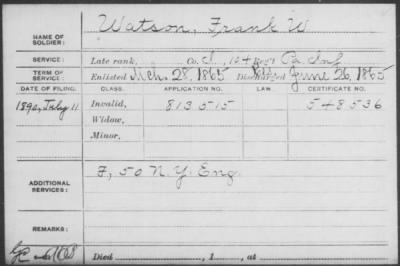 NAME OF SOLDIER: Watson, Frank W
SERVICE: Late rank, Co. I, 104 Reg't Pa. Inf
TERM OF SERVICE: Enlisted Mch. 28, 1865 Discharged June 26, 1865
DATE OF FILING. CLASS. APPLICATION NO. LAW. CERTIFICATE NO.
1890, July 11 Invalid, 813515 548536
Widow,
Minor,
ADDITIONAL SERVICES: F, 50 N.Y. Eng.
REMARKS:
Died , 1 , at